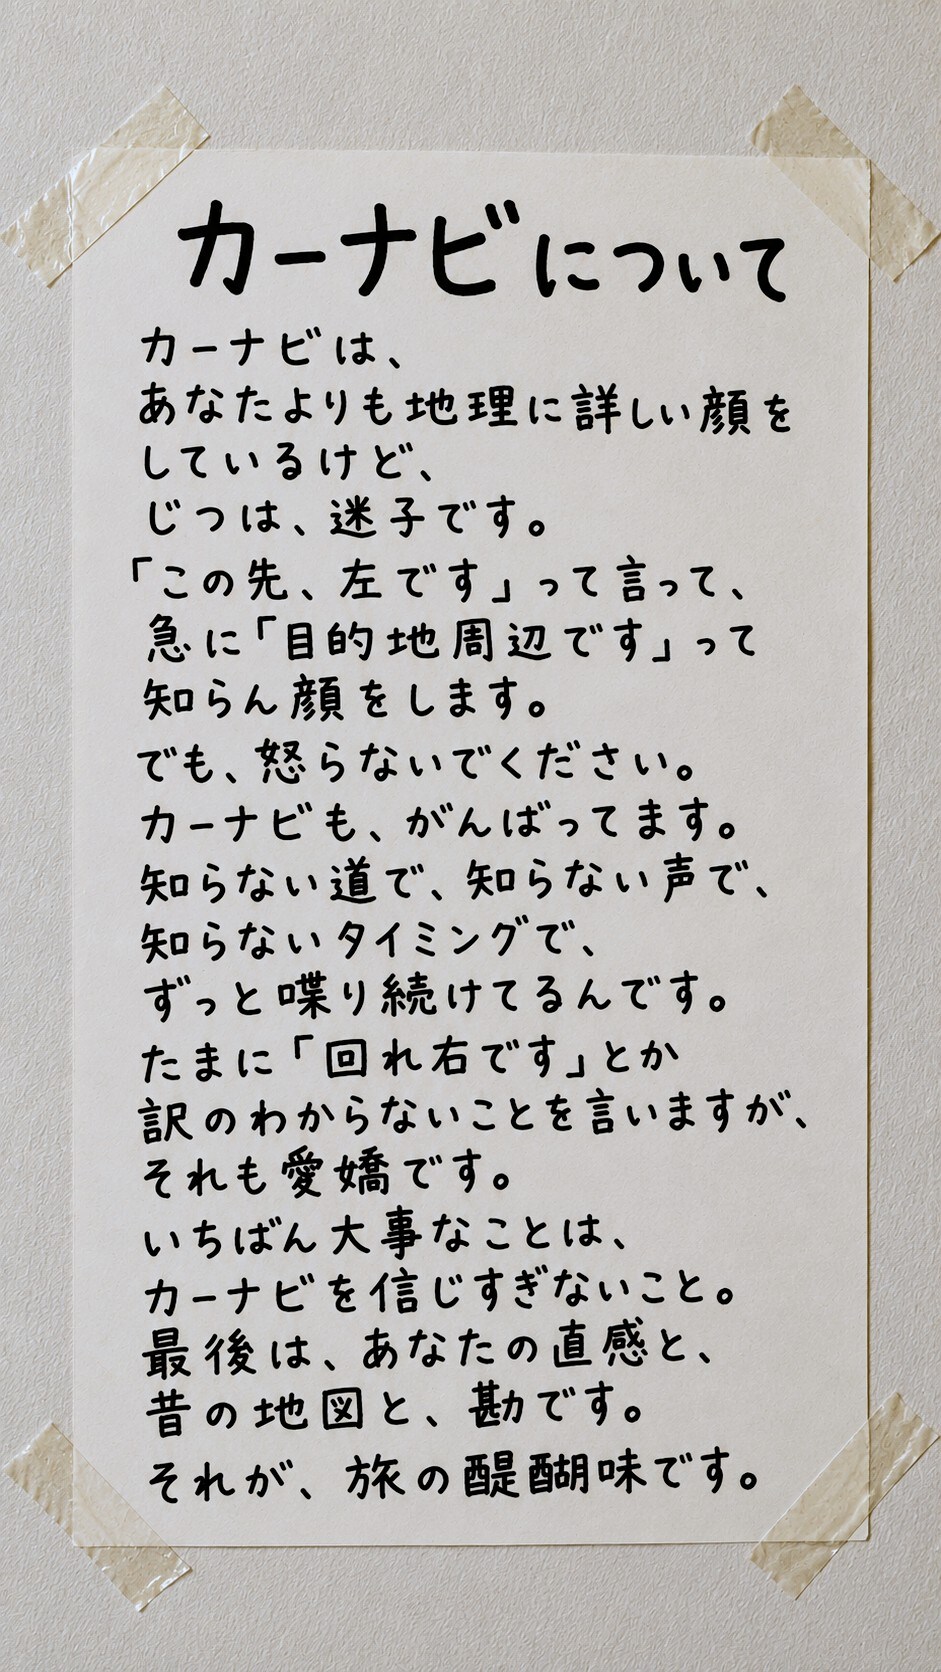 カーナビについて
カーナビは、
あなたよりも地理に詳しい顔を
しているけど、
じつは、迷子です。
「この先、左です」って言って、
急に「目的地周辺です」って
知らん顔をします。
でも、怒らないでください。
カーナビも、がんばってます。
知らない道で、知らない声で、
知らないタイミングで、
ずっと喋り続けてるんです。
たまに「回れ右です」とか
訳のわからないことを言いますが、
それも愛嬌です。
いちばん大事なことは、
カーナビを信じすぎないこと。
最後は、あなたの直感と、
昔の地図と、勘です。
それが、旅の醍醐味です。